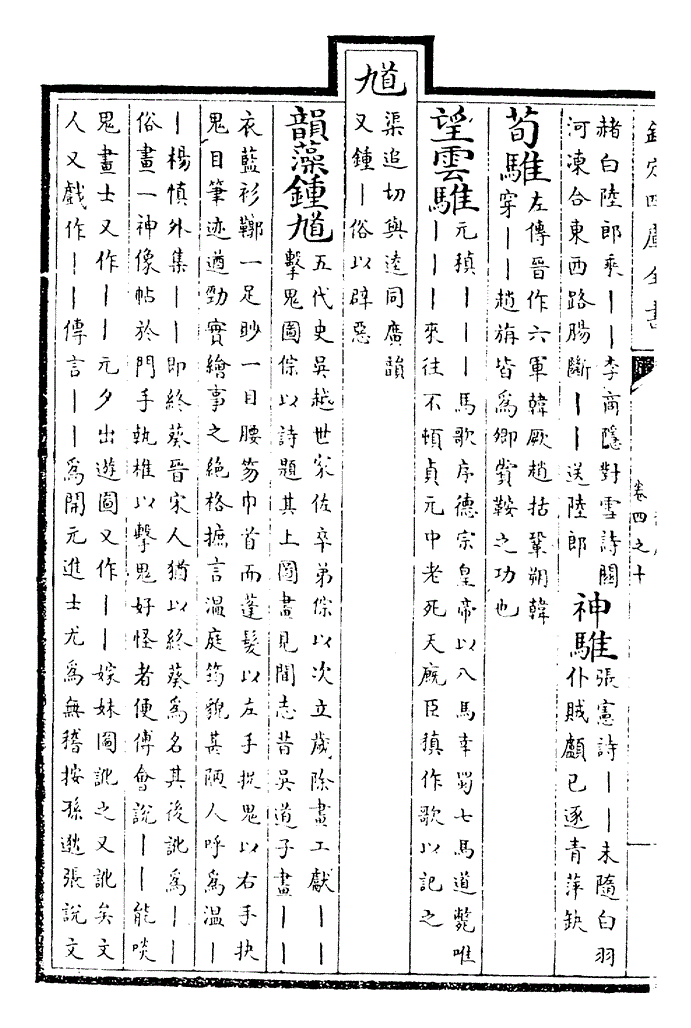 欽定四庫全書
卷四之十
赭白陸郎乘｜｜李商隱對雪詩關
河凍合東西路腸斷｜｜送陸郎
神騅
張憲詩｜｜未隨白羽
仆賊顱已逐青萍缺
荀騅
左傳晉作六軍韓厥趙括鞏朔韓
穿｜｜趙旃皆為卿賞鞍之功也
望雲騅
元稹｜｜｜馬歌序德宗皇帝以八馬幸蜀七馬道斃唯
｜｜｜來往不頓貞元中老死天廐臣稹作歌以記之
馗
渠追切與逵同廣韻
又鍾｜俗以辟惡
韻藻鍾馗
五代史吳越世家佐卒弟倧以次立歲除畫工獻｜｜
擊鬼圖倧以詩題其上圖畫見聞志昔吳道子畫｜｜
衣藍衫鞹一足眇一目腰笏巾首而蓬髮以左手捉鬼以右手抉
鬼目筆迹遒勁實繪事之絶格摭言溫庭筠貌甚陋人呼為溫｜
｜楊慎外集｜｜即終葵晉宋人猶以終葵為名其後訛為｜｜
俗畫一神像帖於門手執椎以擊鬼好怪者便傅會說｜｜能啖
鬼畫士又作｜｜元夕出遊圖又作｜｜嫁妹圖訛之又訛矣文
人又戲作｜｜傳言｜｜為開元進士尤為無稽按孫逖張說文